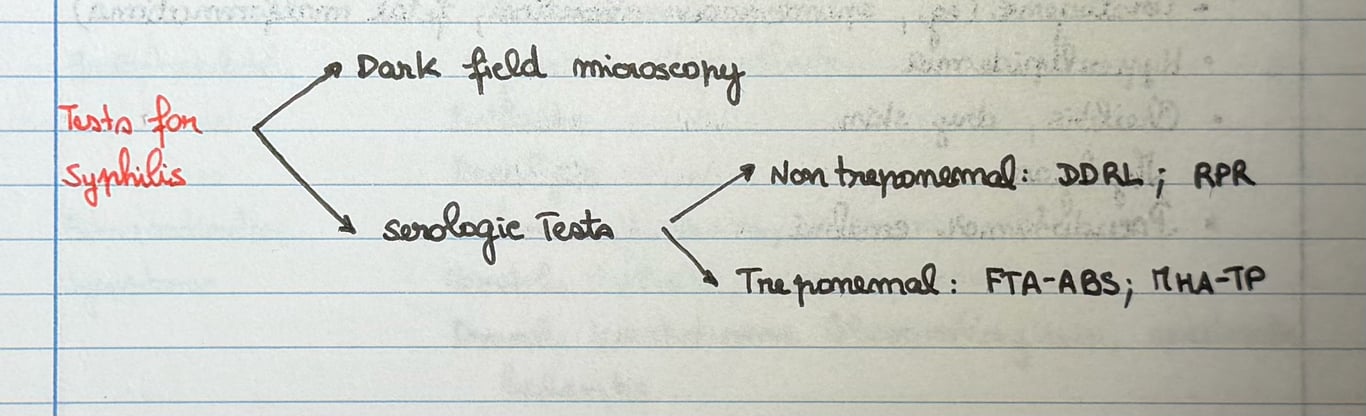 Dark field microscopy
Tests for
Syphilis
Nontreponemal: DDRL; RPR
serologic Tests
Treponemal: FTA-ABS; MHA-TP